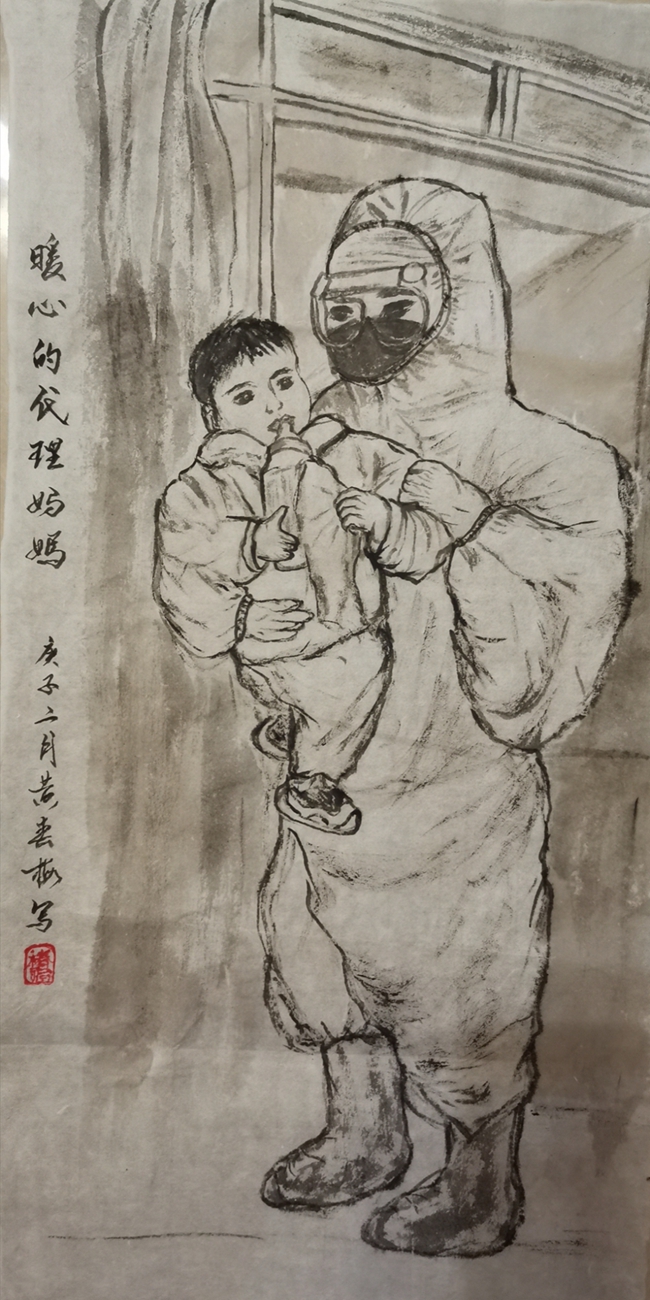 暖心的代理妈媽
庚子二月黄春梅写